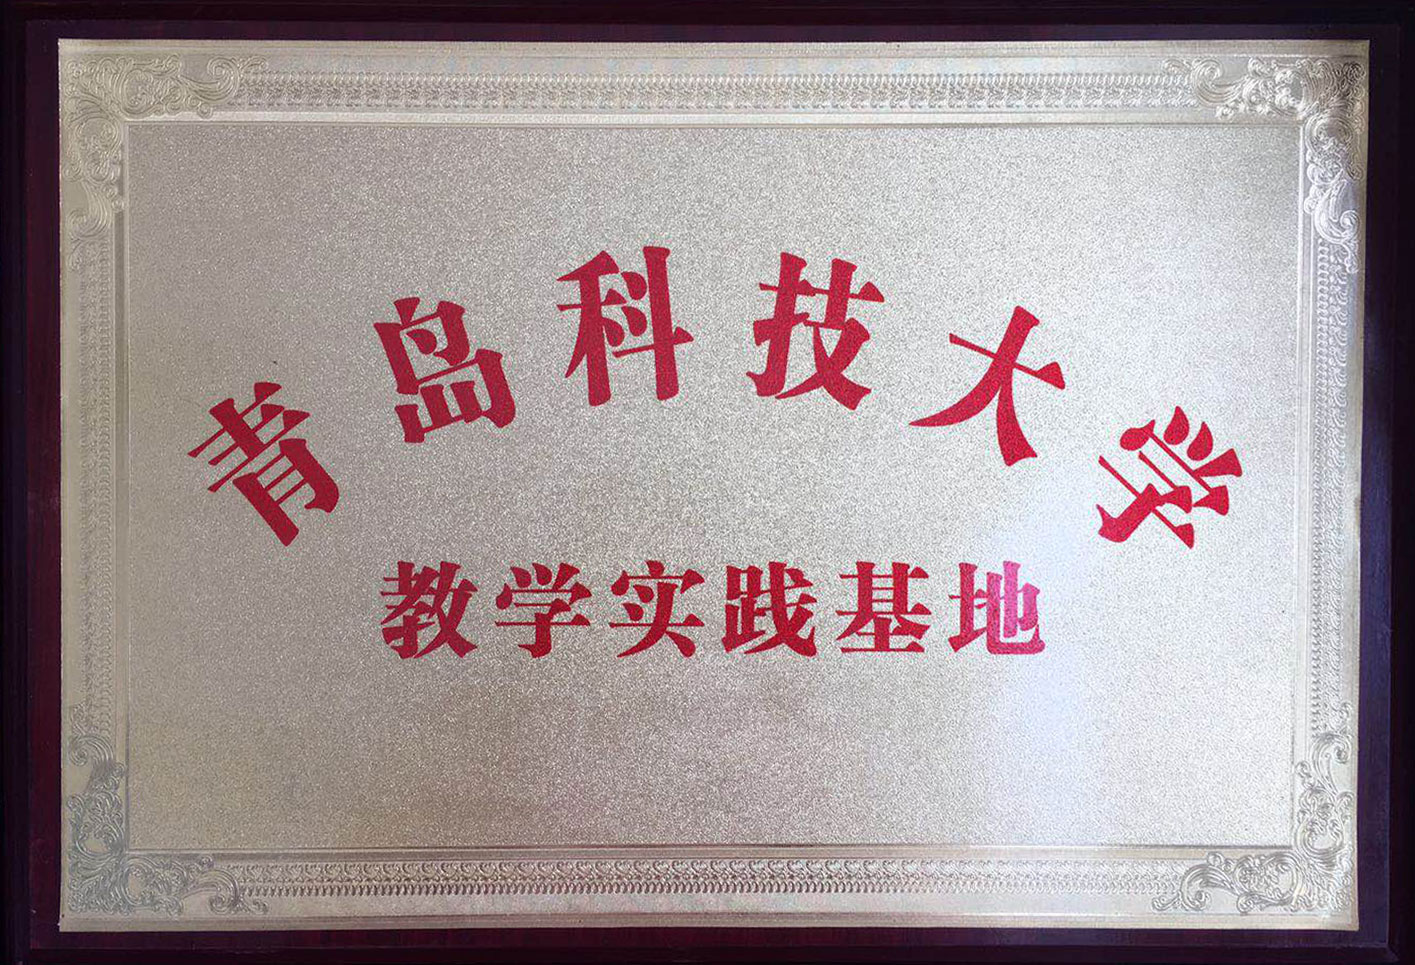 青岛科技大学
教学实践基地